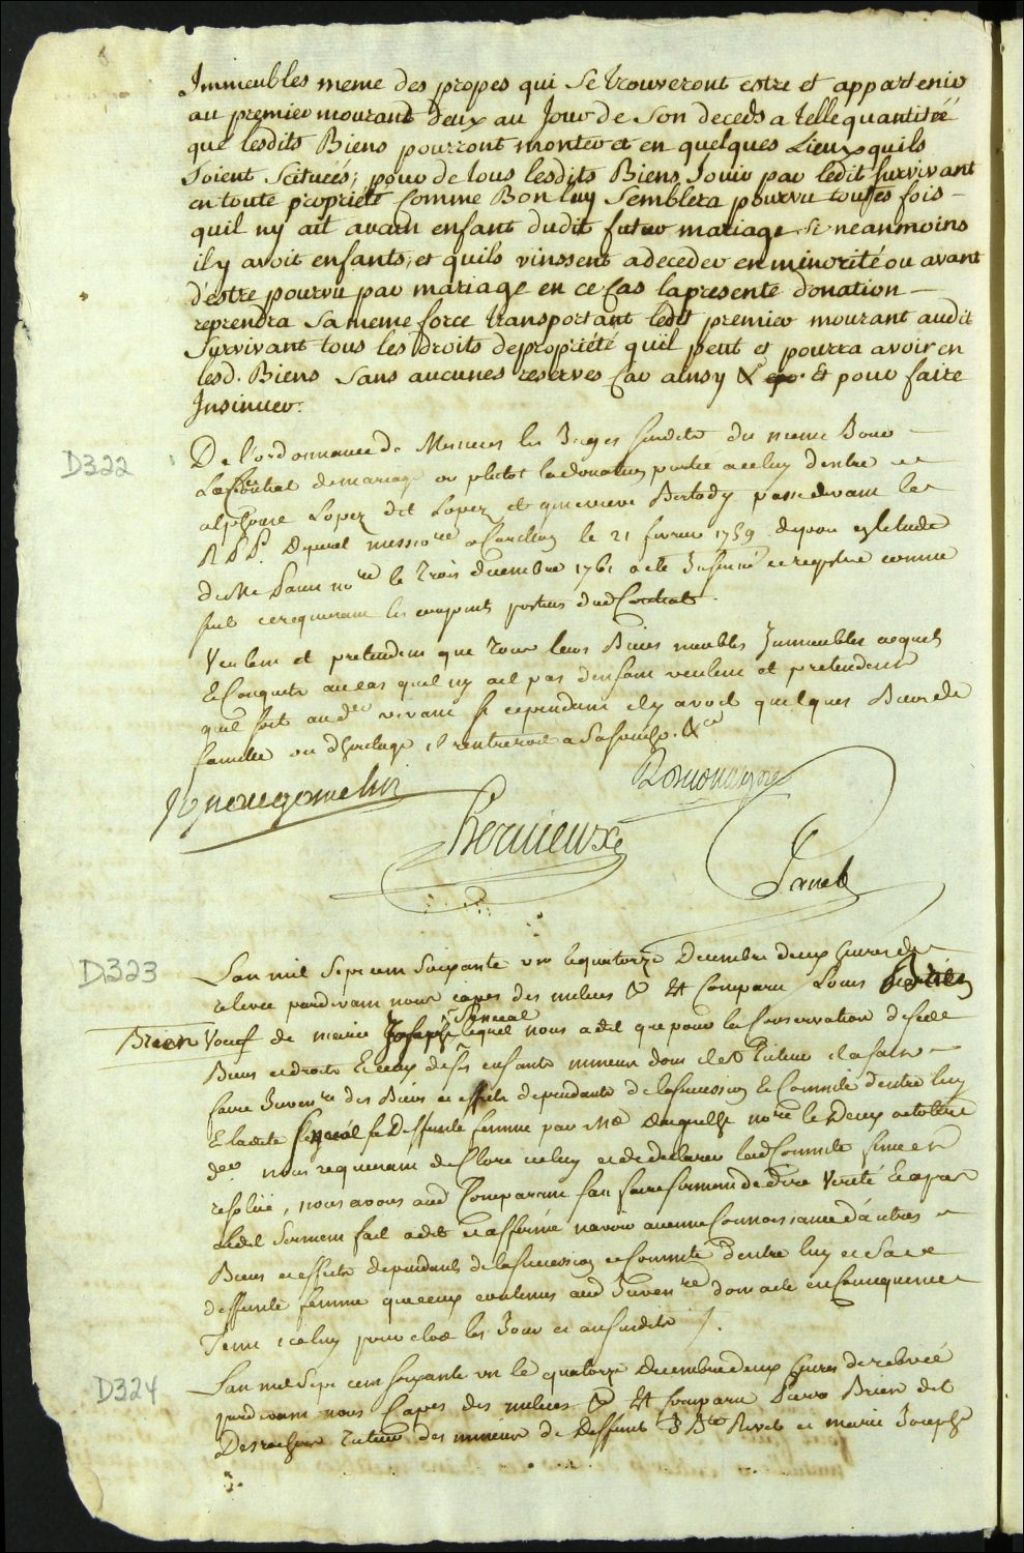 Immeubles meme des propes qui Se trouveront estre et appartenir
au premier mourant deux au Jour de Son deceds a telle quantité
que lesdits Biens pourront monter et en quelques Lieux quils
Soient Scitueés; pour de tous lesdits Biens Jouir par ledit Survivant
en toute propriete Comme Bon luy Semblera pourvu toutes fois
quil ny ait aucun enfant dudit futur mariage Si neanmoins
il y avoit enfants, et quils vinssent a deceder en minorité ou avant
d'estre pourvu par mariage en ce Cas la presente donation
reprendra Sa meme force transportant ledit premier mourant audit
Survivant tous les droits de propriété quil peut et pourra avoir en
lesd. Biens Sans aucunes reserves Car ainsy & Et pour faire
Insinuer.
D322
De l'ordonnance de Messieurs les Juges Susdits du meme Jour
Le Contrat de mariage ou plutot la donation portée a celuy d'entre
alphonse Lopez dit Lopez et genevieve Bertody passé devant le
R. P. missionre a le 21 fevrier 1759 depose en letude
de Me Panet nore le Trois decembre 1761 a eté Insinué et registré comme
Suit ce requerant les conjoints porteurs dud Contrat
Veulent et pretendent que Tous leurs Biens meubles Immeubles acquets
& Conquets au cas quil ny ait pas denfans veulent et pretendent
quil soit au d. vivant Si cependant il y avoit quelques Biens de
famille ou dheritage il rentreroit a Sa famille. &ce
R
Hervieux
Panet
D323
Lan mil Sept cent Soixante un le quatorze Decembre deux heures de
relevée pardevant nous capes des milices & Est Comparu Louis Brien
Brien Veuf de marie Joseph Senecal lequel nous a dit que pour la Conservation de Ses
Biens et droits & ceux de ses enfants mineurs dont il est Tuteur il a fait
faire Invenre des Biens et effets dependants de la Succession & Commté dentre luy
& ladite Senecal Sa Deffunte femme par Me nore le Deux octobre
der. nous requerant de Clore iceluy et de declarer lad Commté finie et
resolue, nous avons aud Comparant fait faire Serment de dire Verité & apres
led Serment fait a dit et affirmé navoir aucune Connoissance d'autres
Biens et effets dependants de la Succession et Commté d'entre luy et Sa
deffunte femme que ceux contenus aud Invenre dont acte en Consequence
Tenu iceluy pour clos les Jour et an Susdits
D324
Lan mil Sept cent Soixante un le quatorze Decembre deux heures de relevée
pardevant nous Capes des milices & Est Comparu Pierre Brien dit
Desrochers Tuteur des mineurs de Deffunt J Bte Rivet et marie Joseph